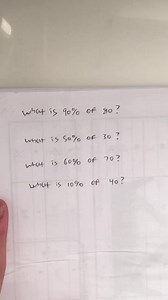 What is 90% of 80?
What is 50% of 30?
What is 60% of 70?
What is 10% of 40?